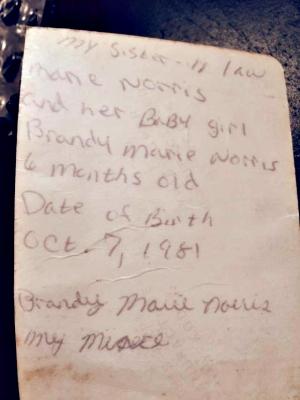 my sister-n law
marie Norris
and her BaBy girl
Brandy marie Norris
6 months old
Date of Birth
Oct. 7, 1981
Brandy Marie Norris
my Miece